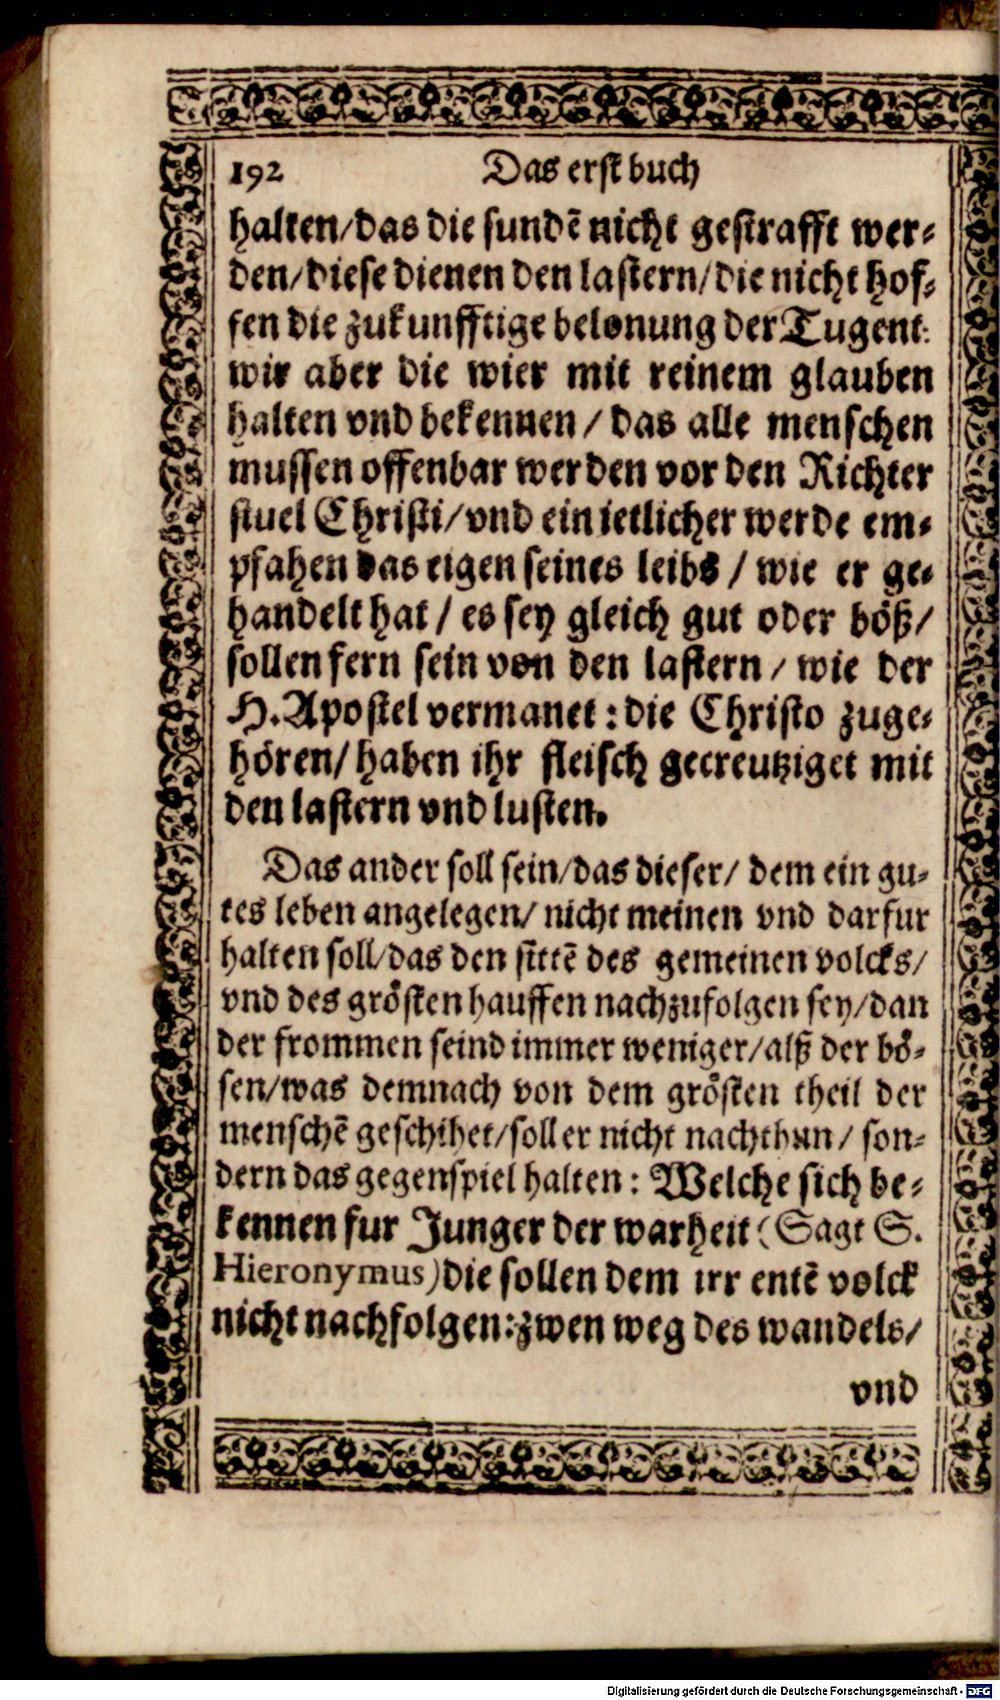 192 Das erst buch
halten/das die sundē nicht gestrafft wer-
den/diese dienen den lastern/die nicht hof-
fen die zukunfftige belonung der Tugent:
wir aber die wier mit reinem glauben
halten vnd bekennen/ das alle menschen
mussen offenbar werden vor den Richter
stuel Christi/vnd ein ietlicher werde em-
pfahen das eigen seines leibs / wie er ge-
handelt hat / es sey gleich gut oder böß/
sollen fern sein von den lastern / wie der
H. Apostel vermanet : die Christo zuge-
hören/ haben ihr fleisch gecreutziget mit
den lastern vnd lusten.
Das ander soll sein/das dieser/ dem ein gu-
tes leben angelegen/ nicht meinen vnd darfur
halten soll/das den sittē des gemeinen volcks/
vnd des grösten hauffen nachzufolgen sey/dan
der frommen seind immer weniger/alß der bö-
sen/was demnach von dem grösten theil der
menschē geschihet/soll er nicht nachthun/ son-
dern das gegenspiel halten : Welche sich be-
kennen fur Junger der warheit (Sagt S.
Hieronymus) die sollen dem irr entē volck
nicht nachfolgen:zwen weg des wandels/
vnd
Digitalisierung gefördert durch die Deutsche Forschungsgemeinschaft - DFG